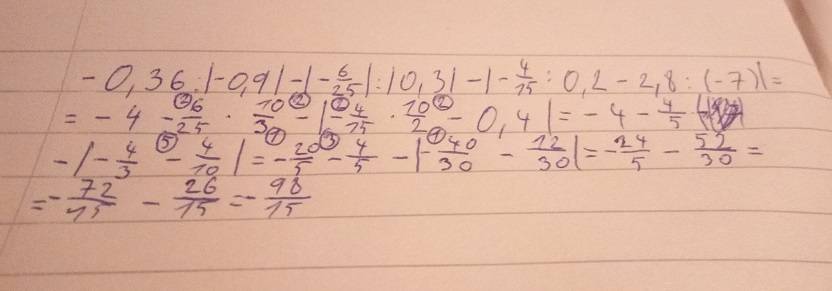 - 0,36 : |-0,9| - |-6/25| : |0,3| - |-4/15 : 0,2 - 2,8 : (-7)| =
= - 4 - 6/25 · 10/3 - |-4/15 · 10/2 - 0,4| = - 4 - 4/5
- |-4/3 - 4/10| = -20/5 - 4/5 - |-40/30 - 12/30| = -24/5 - 52/30 =
= -72/15 - 26/15 = -98/15